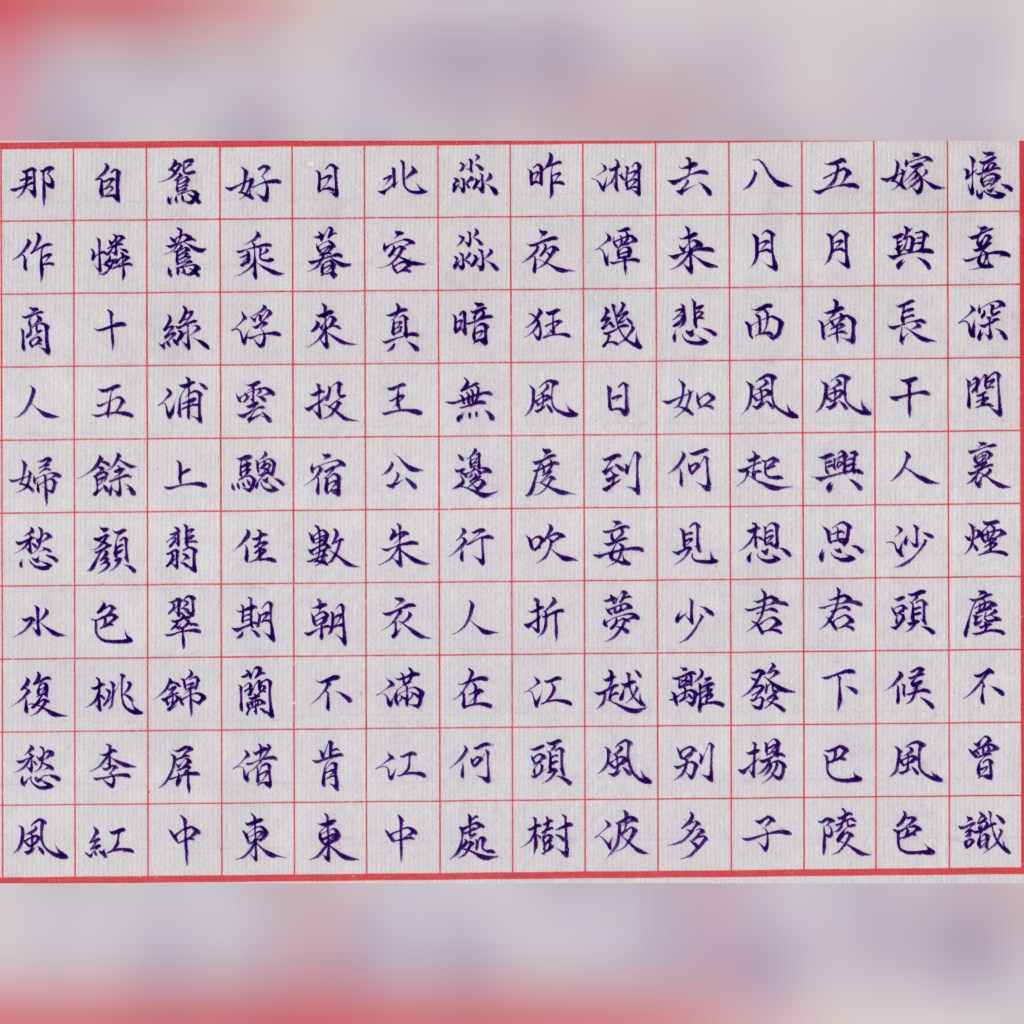 憶妾深閨裏煙塵不曾識
嫁與長干人沙頭候風色
五月南風興思君下巴陵
八月西風起想君發揚子
去来悲如何見少離别多
湘潭幾日到妾夢越風波
昨夜狂風度吹折江頭樹
淼淼暗無邊行人在何處
北客真王公朱衣滿江中
日暮來投宿數朝不肯東
好乘浮雲驄佳期蘭渚東
鴛鴦綠浦上翡翠錦屏中
自憐十五餘顏色桃李紅
那作商人婦愁水復愁風